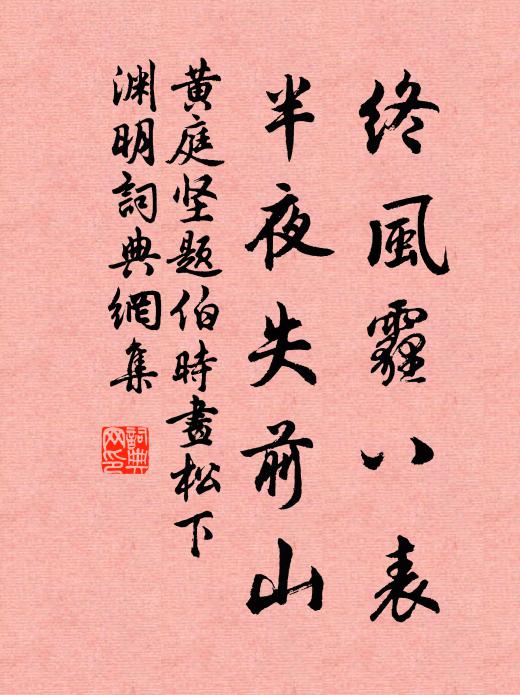 終風霾八表
半夜失前山
黄庭坚题伯時畫松下
渊明詞典網集
詞典
网印